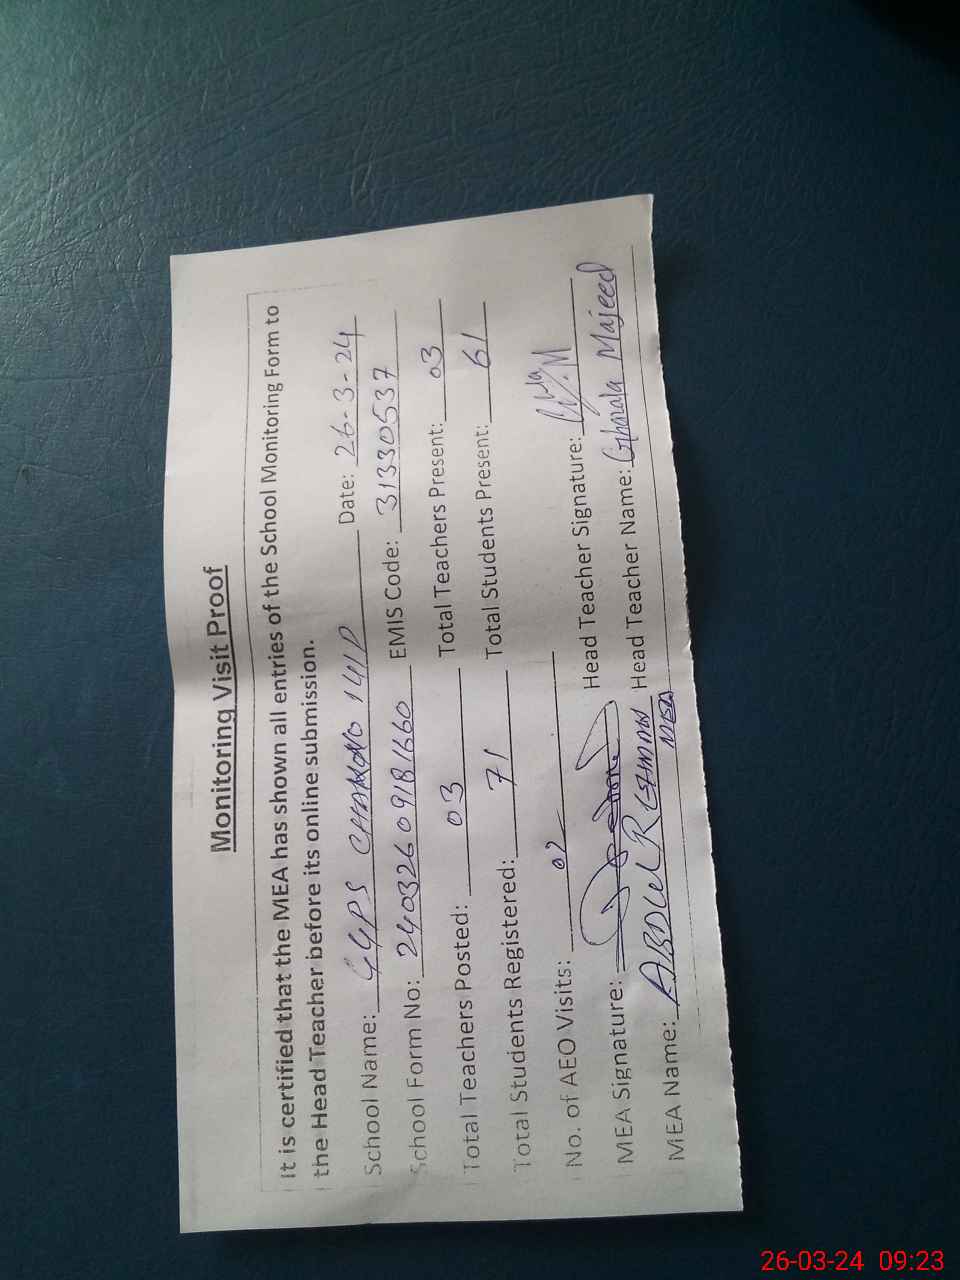 Monitoring Visit Proof
It is certified that the MEA has shown all entries of the School Monitoring Form to
the Head Teacher before its online submission.
School Name: GGPS CHAK NO 141P Date: 26-3-24
School Form No: 24032609181660 EMIS Code: 31330537
Total Teachers Posted: 03 Total Teachers Present: 03
Total Students Registered: 71 Total Students Present: 61
No. of AEO Visits: 02
MEA Signature: Head Teacher Signature:
MEA Name: ABDUL R Head Teacher Name: Ghazala Majeed
MEA
26-03-24 09:23